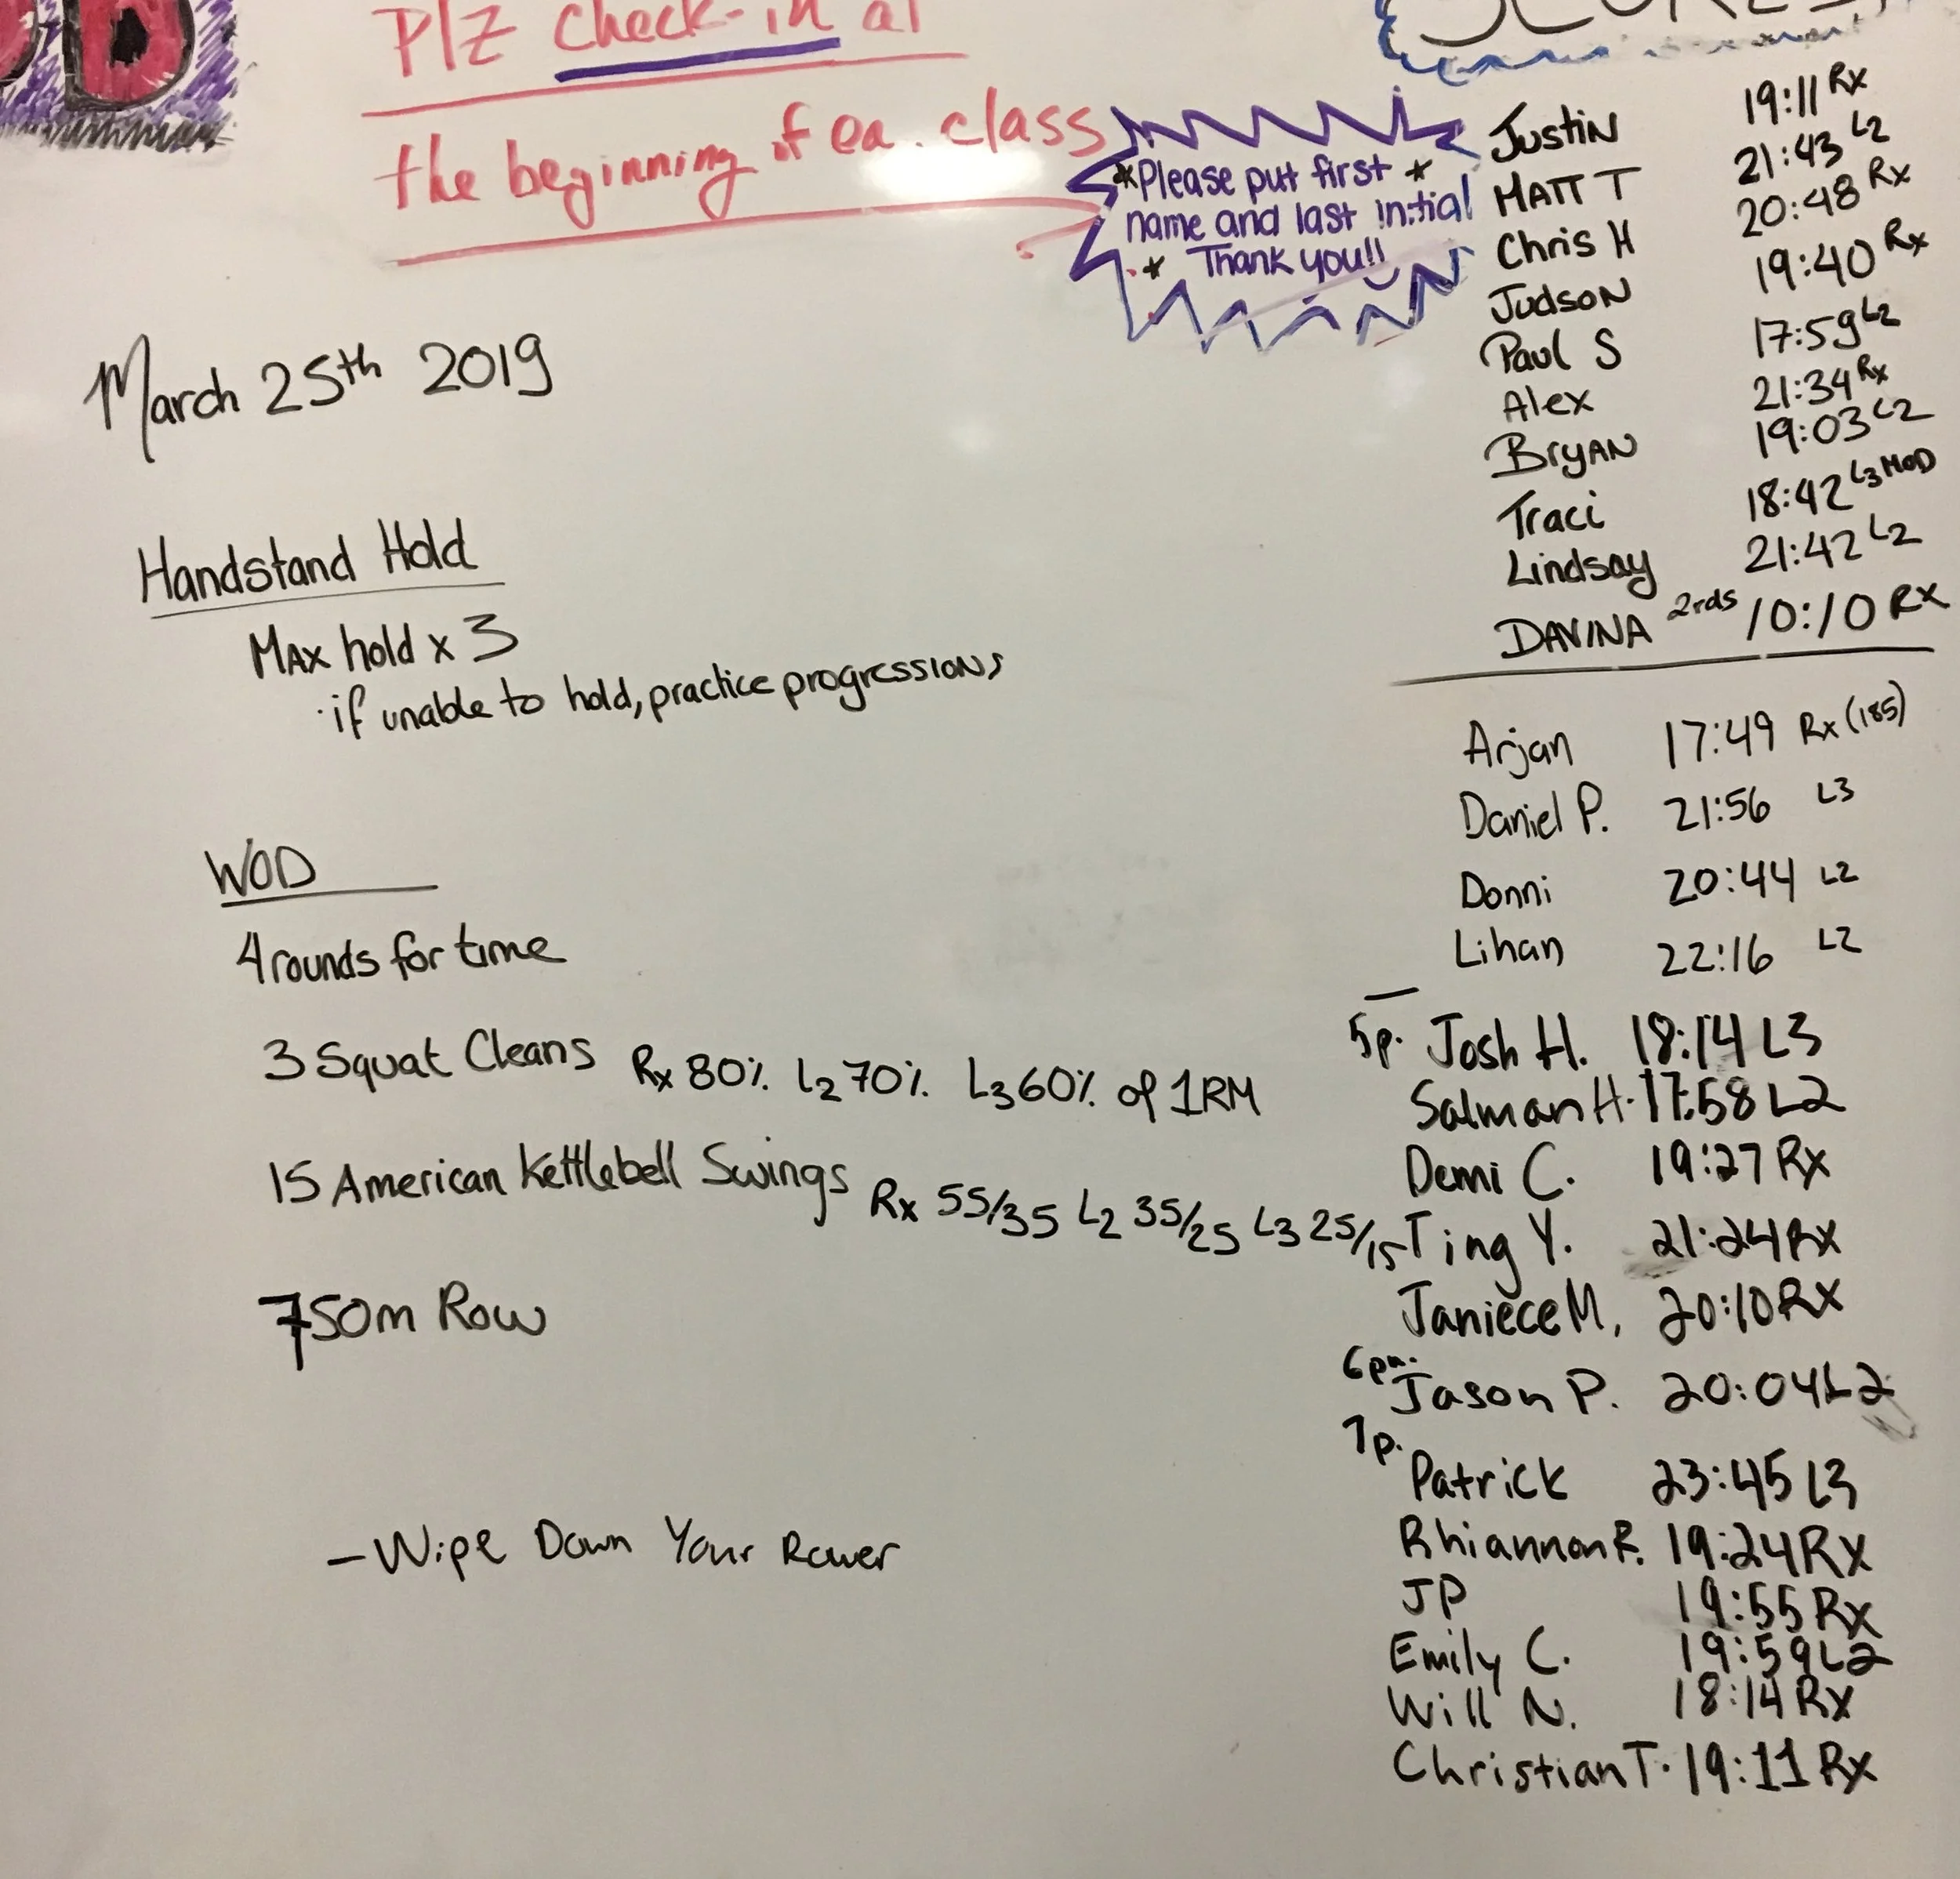 Plz check-in at
the beginning of ea. class
*Please put first *
name and last initial
* Thank you!!
SCORES
March 25th 2019
Handstand Hold
Max hold x 3
· if unable to hold, practice progressions
WOD
4 rounds for time
3 Squat Cleans Rx 80% L2 70% L3 60% of 1RM
15 American Kettlebell Swings Rx 55/35 L2 35/25 L3 25/15
750m Row
- Wipe Down Your Rower
Justin 19:11 Rx
MATT T 21:43 L2
Chris H 20:48 Rx
Judson 19:40 Rx
Paul S 17:59 L2
Alex 21:34 Rx
Bryan 19:03 L2
Traci 18:42 L3 MOD
Lindsay 21:42 L2
DAVINA 2rds 10:10 RX
Arjan 17:49 Rx (185)
Daniel P. 21:56 L3
Donni 20:44 L2
Lihan 22:16 L2
5p. Josh H. 18:14 L3
Salman H. 17:58 L2
Demi C. 19:27 Rx
Ting Y. 21:24 Rx
Janiece M. 20:10 RX
6pm. Jason P. 20:04 L2
7p.
Patrick 23:45 L3
Rhiannon R. 19:24 Rx
JP 19:55 Rx
Emily C. 19:59 L2
Will N. 18:14 Rx
Christian T. 19:11 Rx